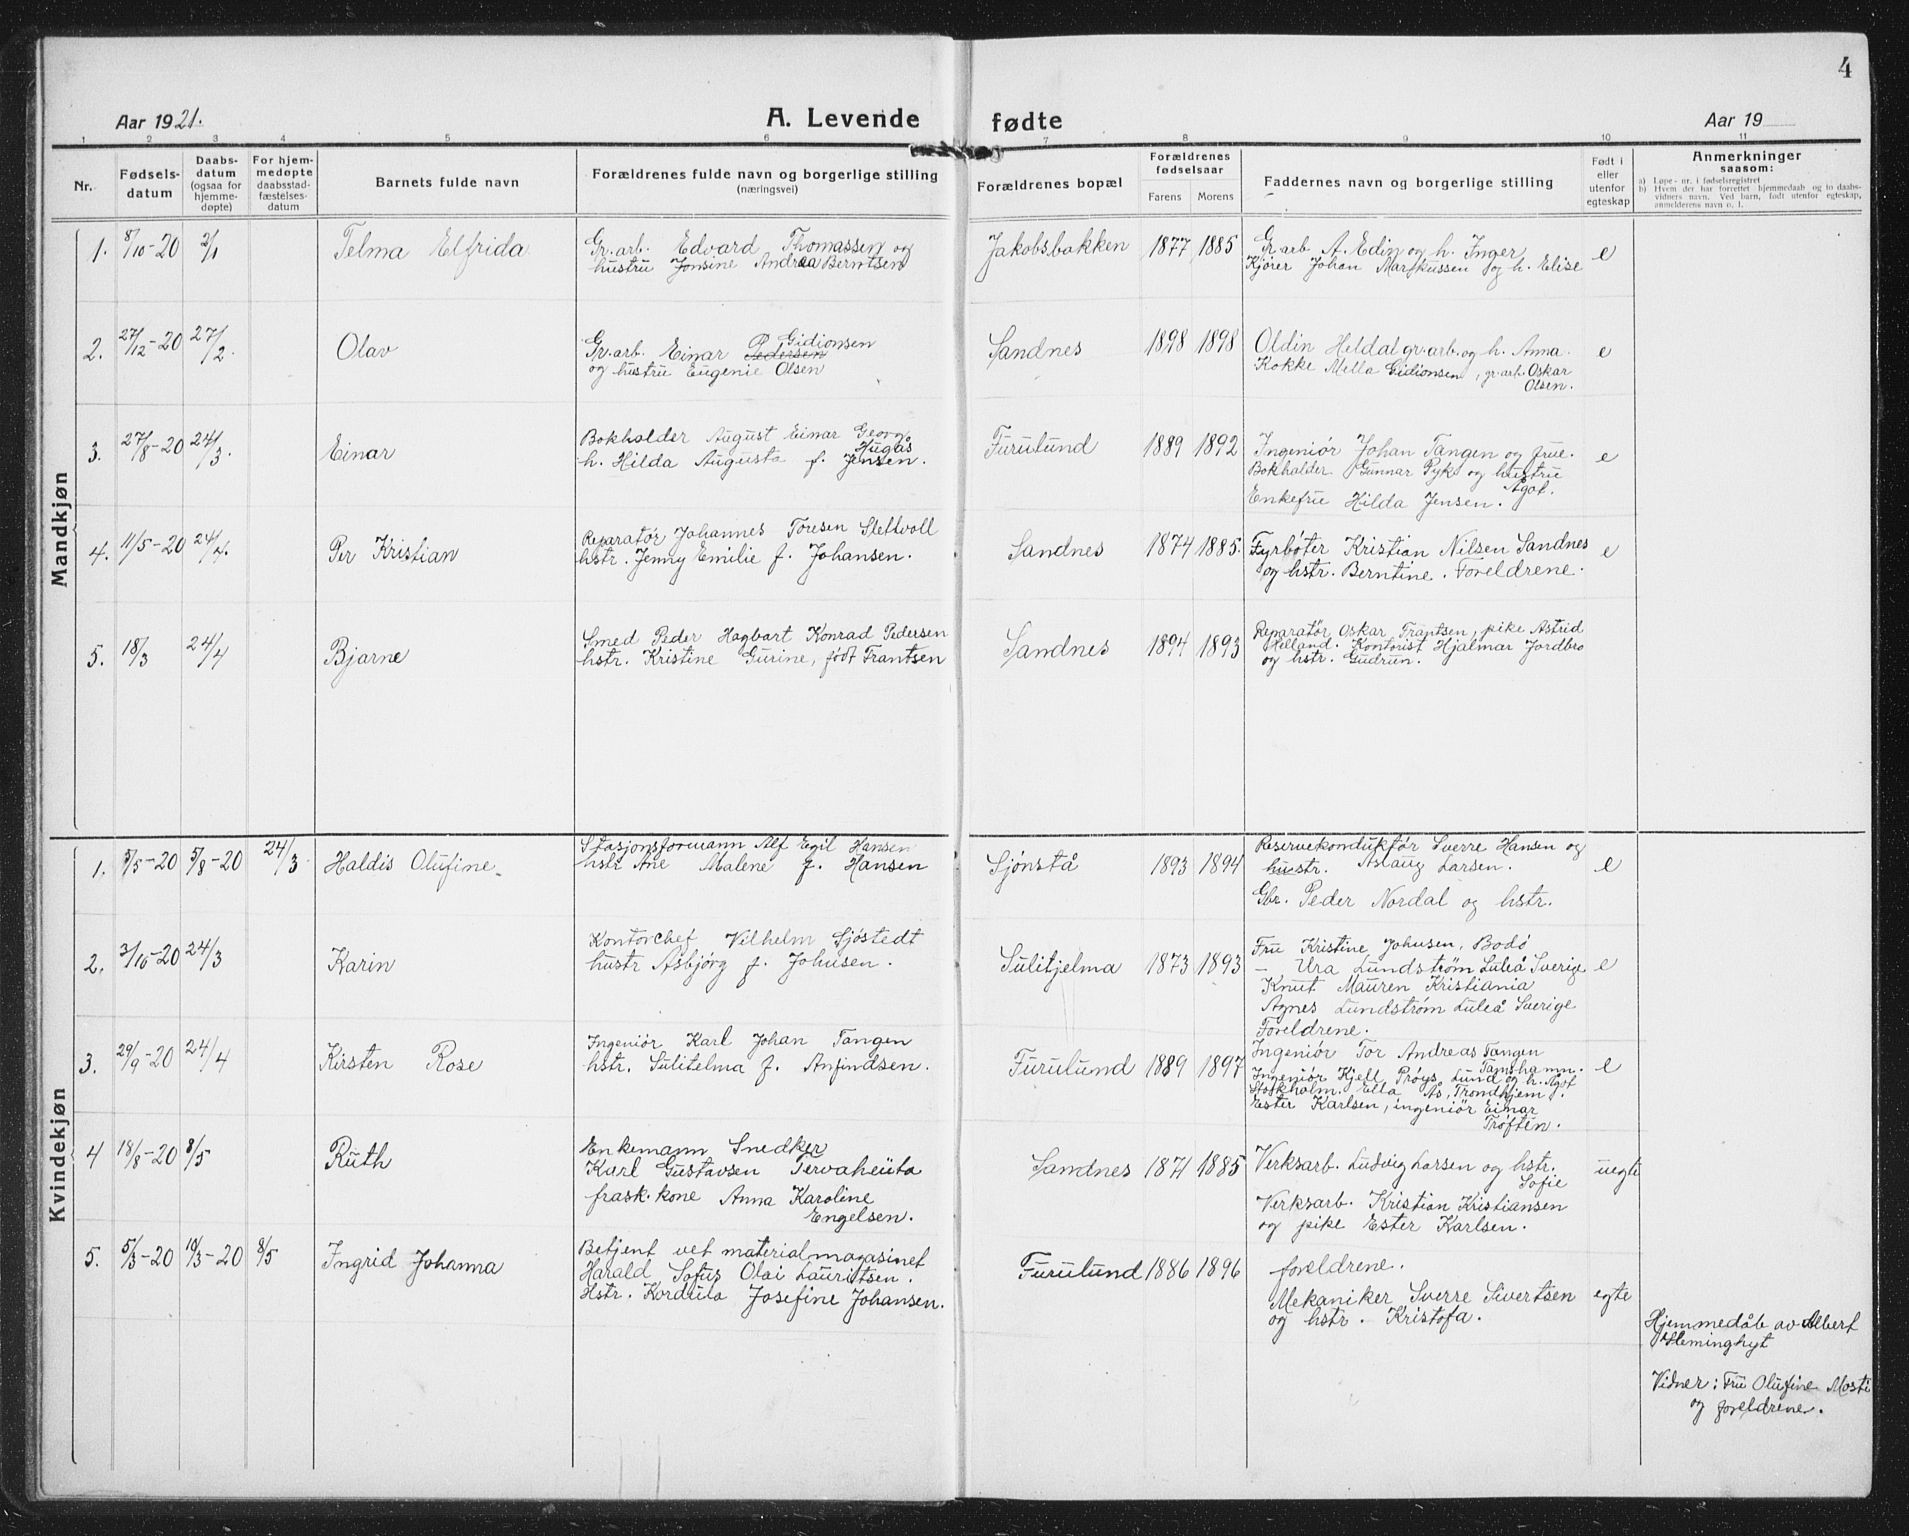 4
Aar 1921.
A. Levende fødte
Aar 19
1 2 3 4 5 6 7 8 9 10 11
Nr.
Fødsels-
datum
Daabs-
datum
(ogsaa for
hjemme-
døpte)
For hjem-
medøpte
daabsstad-
fæstelses-
datum
Barnets fulde navn
Forældrenes fulde navn og borgerlige stilling
(næringsvei)
Forældrenes bopæl
Forældrenes
fødselsaar
Farens Morens
Faddernes navn og borgerlige stilling
Født i
eller
utenfor
egteskap
Anmerkninger
saasom:
a) Løpe-nr. i fødselsregistret
b) Hvem der har forrettet hjemmedaab og to daabs-
vidners navn. Ved barn, født utenfor egteskap,
anmelderens navn o. l.
Mandkjøn
1. 8/10-20 2/1
Telma Elfrida
Gr.arb. Edvard Thomassen og
hustru Jonsine Andrea Berntsen
Jakobsbakken 1877 1885
Gr.arb A. Edin og h. Inger
Kjører Johan Markussen og h. Elise
e
2. 27/12-20 27/2.
Olav
Gr.arb. Einar P. Gidionsen
Pedersen
og hustru Eugenie Olsen
Sandnes 1898 1898
Oldin Heldal gr.arb. og h. Anna.
Kokke Mella Gidionsen, gr.arb. Oskar
Olsen.
e
3. 27/8-20 24/3.
Einar
Bokholder August Einar Georg
Hugås
h. Hilda Augusta f. Jensen.
Furulund 1889 1892
Ingeniør Johan Tangen og frue.
Bokholder Gunnar Pyk og hustrue
Agot.
Enkefrue Hilda Jensen.
e
4. 11/5-20 24/4.
Per Kristian
Reparatør Johannes Toresen Stettvoll
hstr. Jenny Emilie f. Johansen.
Sandnes 1874 1885.
Fyrbøter Kristian Nilsen Sandnes
og hstr. Berntine. Foreldrene.
e
5. 18/3 24/4
Bjarne
Smed Peder Hagbart Konrad Pedersen
hstr. Kristine Gurine, født Frantsen
Sandnes 1894 1893
Reparatør Oskar Frantsen, pike Astrid
Helland. Kontorist Hjalmar Jordbro
og hstr. Gudrun.
Kvindekjøn
1. 5/5-20 5/8-20 24/3
Haldis Olufine.
Stasjonsformann Alf Egil Hansen
hstr Ane Malene f. Hansen
Sjønstå 1893 1894
Reservekonduktør Sverre Hansen og
hustr. Aslaug Larsen.
Gbr. Peder Nordal og hstr.
e
2. 3/10-20 24/3
Karin
Kontorchef Vilhelm Sjøstedt
hustr Asbjørg f. Johnsen.
Sulitjelma 1873 1893
Fru Kristine Johnsen, Bodø
- Ura Lundstrøm Luleå Sverige
Knut Mauren Kristiania
Agnes Lundstrøm Luleå Sverige
Foreldrene.
e
3. 29/9-20 24/4
Kirsten Rose
Ingeniør Karl Johan Tangen
hstr. Sulitelma f. Anfindsen.
Furulund 1889 1897
Ingeniør Tor Andreas Tangen
Tamshamn.
Ingeniør Kjell Prøys Lund og h. Agot
Stockholm. Ella Ås, Trondhjem.
Ester Karlsen, ingeniør Einar
Trøften.
e
4 18/8-20 8/5
Ruth
Enkemann Snedker
Karl Gustavsen Tervaheuta
frask. kone Anna Karoline
Engelsen.
Sandnes 1871 1885
Verksarb. Ludvig Larsen og hstr.
Sofie
Verksarb. Kristian Kristiansen
og pike Ester Karlsen.
uegte
5. 5/3-20 19/3-20 8/5
Ingrid Johanna
Betjent vet materialmagasinet
Harald Sofus Olai Lauritsen.
Hstr. Kordula Josefine Johansen.
Furulund 1886 1896
foreldrene.
Mekaniker Sverre Sivertsen
og hstr. Kristofa.
egte
Hjemmedåb av Albert
Heminghyt
Vidner: Fru Olufine Mosti
og foreldrene.